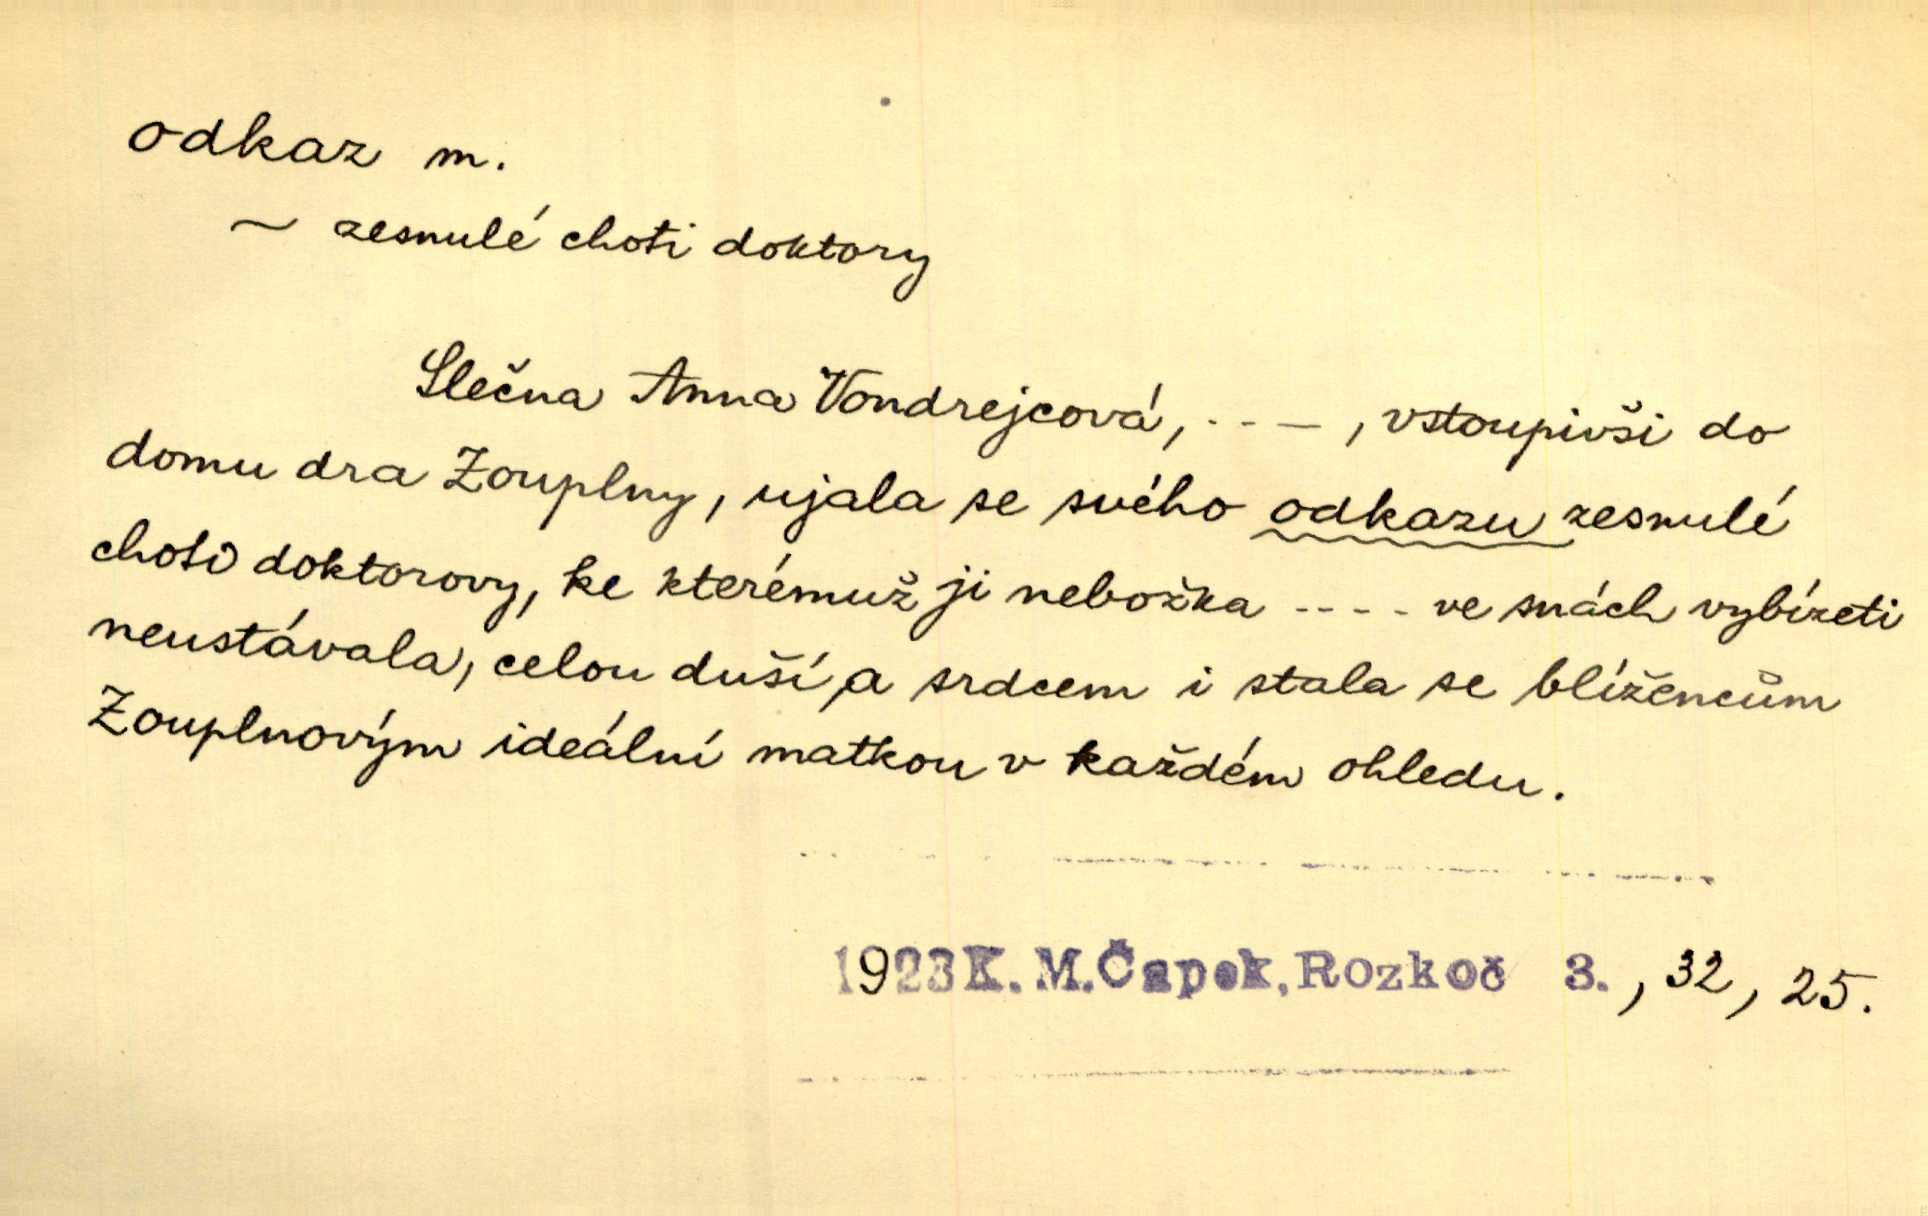 odkaz m.
~ zesnulé choti doktory
Slečna Anna Vondrejcová, - - - , vstoupivši do
domu dra Zouplny, ujala se svého odkazu zesnulé
choti doktorovy, ke kterémuž ji nebožka - - - - ve snách vybízeti
neustávala, celou duší a srdcem i stala se blížencům
Zouplnovým ideální matkou v každém ohledu.
1923 K. M. Čapek, Rozkoč 3. , 32 , 25.